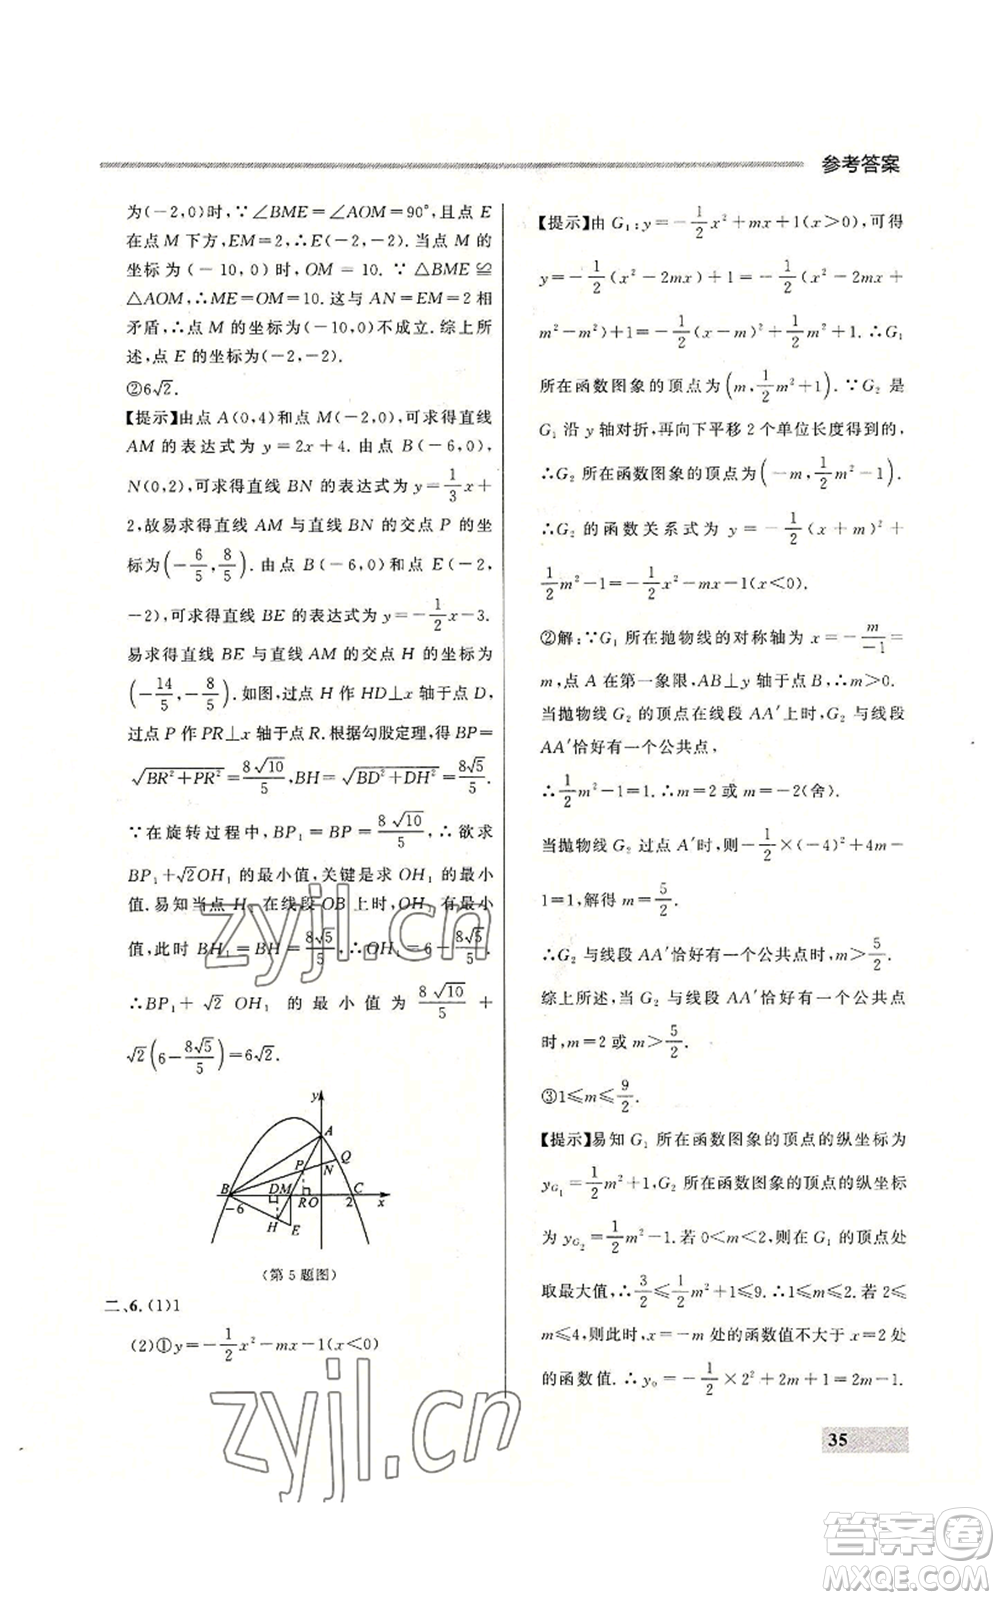 参考答案
为(-2,0)时,∵∠BME=∠AOM=90°,且点 E
在点 M 下方,EM=2,∴E(-2,-2).当点 M 的
坐标为(-10,0)时,OM=10.∵△BME≌
△AOM,∴ME=OM=10.这与 AN=EM=2 相
矛盾,∴点 M 的坐标为(-10,0)不成立.综上所
述,点 E 的坐标为(-2,-2).
②6√2.
【提示】由点 A(0,4)和点 M(-2,0),可求得直线
AM 的表达式为 y=2x+4.由点 B(-6,0),
N(0,2),可求得直线 BN 的表达式为 y=1/3x+
2,故易求得直线 AM 与直线 BN 的交点 P 的坐
标为(-6/5,8/5).由点 B(-6,0)和点 E(-2,
-2),可求得直线 BE 的表达式为 y=-1/2x-3.
易求得直线 BE 与直线 AM 的交点 H 的坐标为
(-14/5,-8/5).如图,过点 H 作 HD⊥x 轴于点 D,
过点 P 作 PR⊥x 轴于点 R.根据勾股定理,得 BP=
√(BR²+PR²)=8√10/5,BH=√(BD²+DH²)=8√5/5.
∵在旋转过程中,BP₁=BP=8√10/5,∴欲求
BP₁+√2OH₁ 的最小值,关键是求 OH₁ 的最小
值.易知当点 H₁ 在线段 OB 上时,OH₁ 有最小
值,此时 BH₁=BH=8√5/5,∴OH₁=6-8√5/5.
∴BP₁+√2 OH₁ 的最小值为 8√10/5+
√2(6-8√5/5)=6√2.
y
A
Q
P
N
B
D
M
C
-6
R
O
2
x
H
E
(第 5 题图)
二、6.(1)1
(2)①y=-1/2x²-mx-1(x<0)
【提示】由 G₁:y=-1/2x²+mx+1(x>0),可得
y=-1/2(x²-2mx)+1=-1/2(x²-2mx+
m²-m²)+1=-1/2(x-m)²+1/2m²+1.∴G₁
所在函数图象的顶点为(m,1/2m²+1).∵G₂ 是
G₁ 沿 y 轴对折,再向下平移 2 个单位长度得到的,
∴G₂ 所在函数图象的顶点为(-m,1/2m²-1).
∴G₂ 的函数关系式为 y=-1/2(x+m)²+
1/2m²-1=-1/2x²-mx-1(x<0).
②解:∵G₁ 所在抛物线的对称轴为 x=-m/-1=
m,点 A 在第一象限,AB⊥y 轴于点 B,∴m>0.
当抛物线 G₂ 的顶点在线段 AA′上时,G₂ 与线段
AA′恰好有一个公共点,
∴1/2m²-1=1.∴m=2 或 m=-2(舍).
当抛物线 G₂ 过点 A′时,则-1/2×(-4)²+4m-
1=1,解得 m=5/2.
∴G₂ 与线段 AA′恰好有一个公共点时,m>5/2.
综上所述,当 G₂ 与线段 AA′恰好有一个公共点
时,m=2 或 m>5/2.
③1≤m≤9/2.
【提示】易知 G₁ 所在函数图象的顶点的纵坐标为
yG₁=1/2m²+1,G₂ 所在函数图象的顶点的纵坐标
为 yG₂=1/2m²-1.若 0<m<2,则在 G₁ 的顶点处
取最大值,∴3/2≤1/2m²+1≤9.∴1≤m≤2.若 2≤
m≤4,则此时,x=-m 处的函数值不大于 x=2 处
的函数值.∴y₀=-1/2×2²+2m+1=2m-1.
35
zyjl.cn
zyjl.cn
答案圈
MXQE.COM